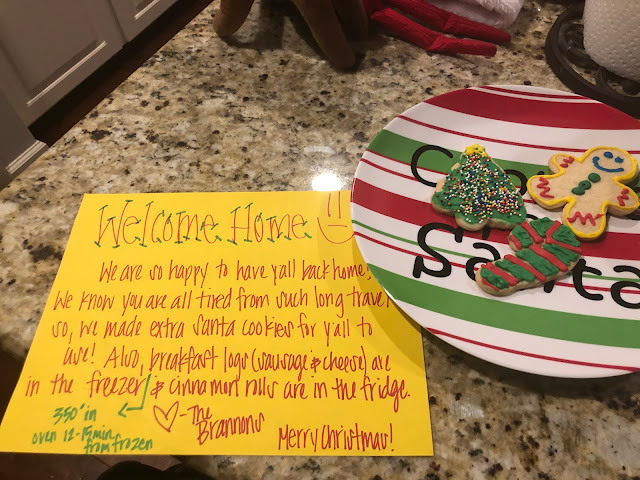 Welcome Home
We are so happy to have yall back home,
We know you are all tired from such long travel
so, we made extra santa cookies for y'all to
use! Also, breakfast logs (sausage & cheese) are
in the freezer & cinnamon rolls are in the fridge.
350° in
oven 12-15 min
from frozen
♡ -The
Brannons
Merry Christmas!
Santa